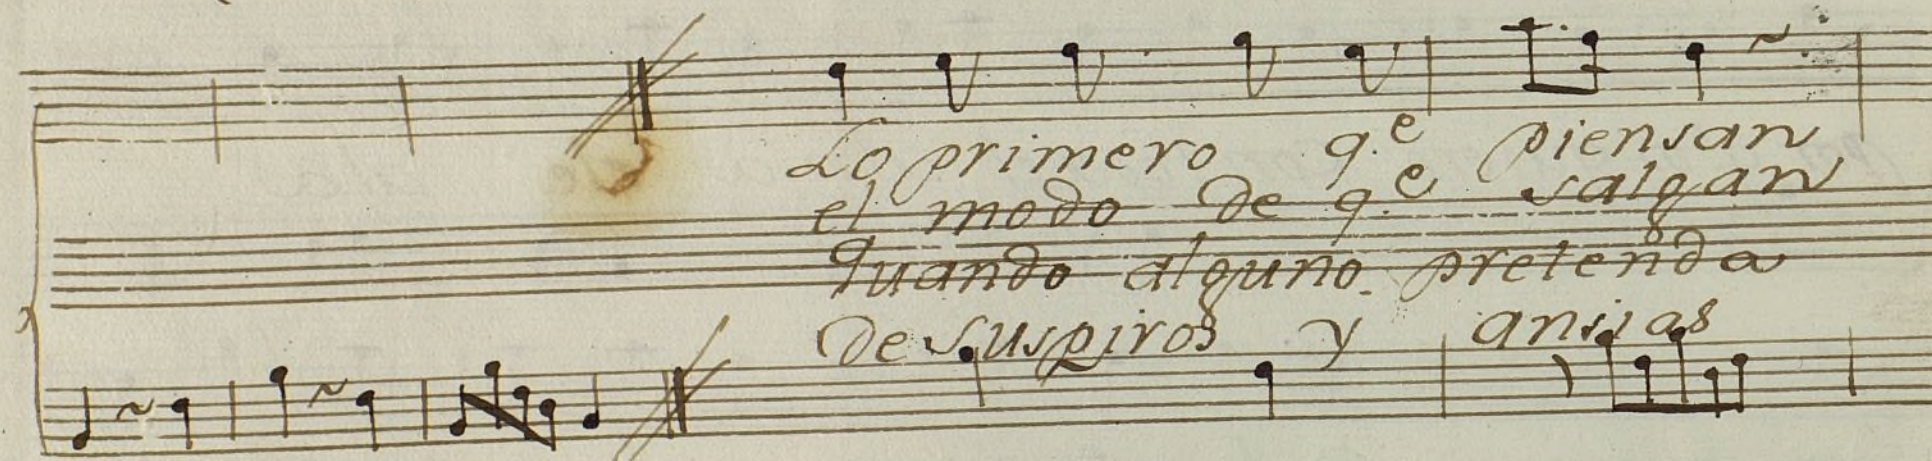 Lo primero q.e piensan
el modo de q.e salgan
quando alguno pretenda
de suspiros y ansias